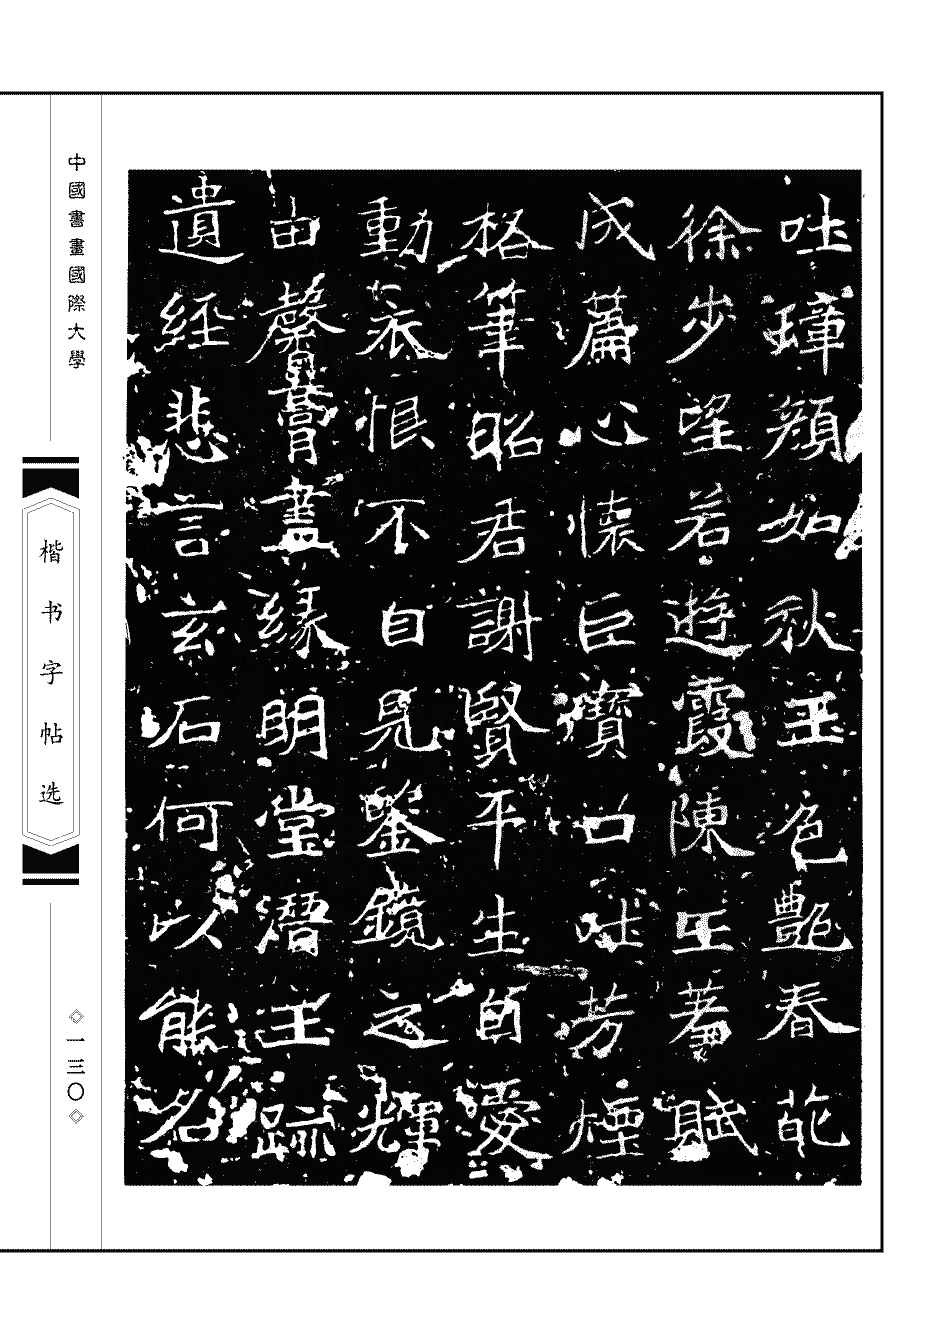 吐璋顏如秋玉色艷春葩
徐步望若遊霞陳王著賦
成篇心懷巨寶口吐芳煙
格筆昭君謝賢平生自愛
動哀恨不自見鑒鏡之輝
由馨膏盡緣明堂潛玉疏
遺經悲言玄石何以能名
中國書畫國際大學
楷书字帖选
◇一三〇◇